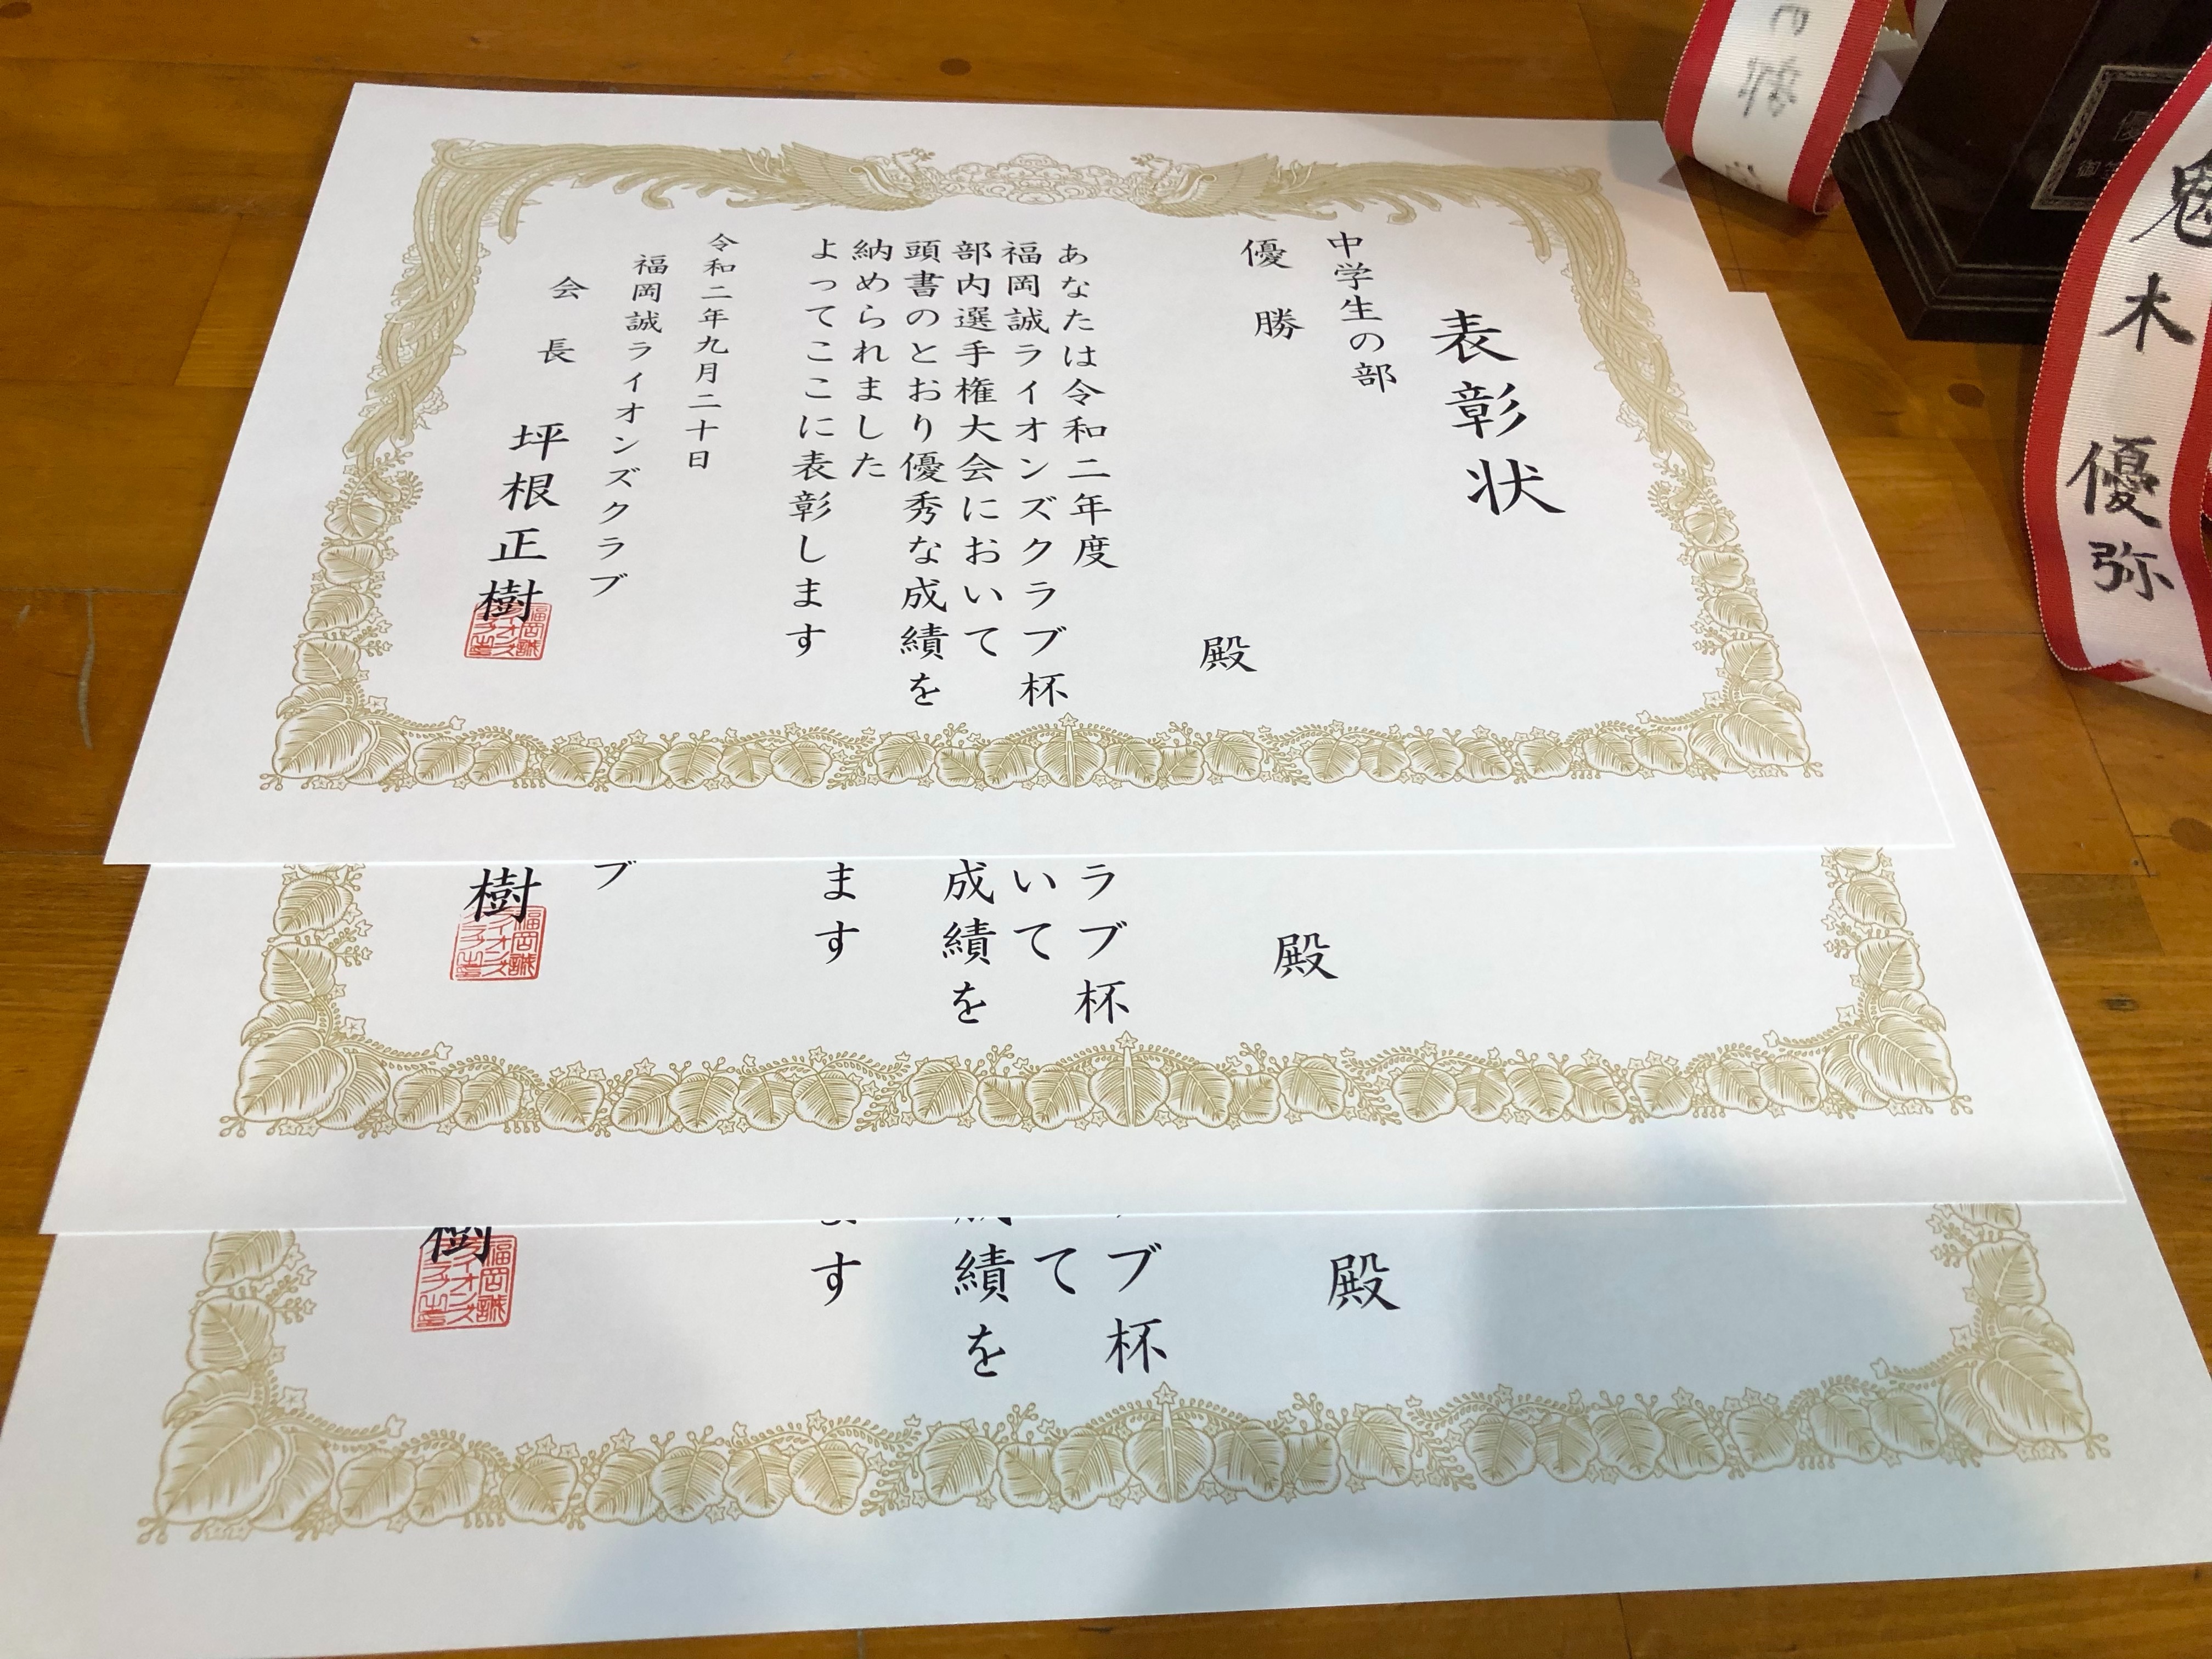 表彰状
中学生の部
優勝
殿
あなたは令和二年度
福岡誠ライオンズクラブ杯
部内選手権大会において
頭書のとおり優秀な成績を
納められました
よってここに表彰します
令和二年九月二十日
福岡誠ライオンズクラブ
会長 坪根正樹
殿
ラブ杯
いて
成績を
ます
ブ
樹
殿
ブ杯
て
績を
す
樹
木優弥
優
御